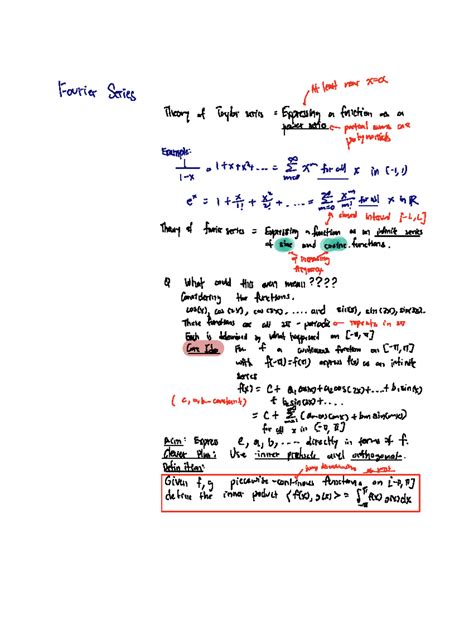 Fourier Series
At least near x=α
Theory of Taylor series = Expressing a function as a
power series ← partial sums are
polynomials
Example:
1/(1-x) = 1+x+x²+... = ∞ Σ n=0 xⁿ for all x in (-1,1)
eˣ = 1 + x/1! + x²/2! + .... = ∞ Σ n=0 xⁿ/n! for all x in ℝ
closed interval [-L, L]
Theory of Fourier series = Expressing a function as an infinite series
of sine and cosine functions.
of increasing
frequency
Q What could this even mean ????
Considering the functions.
cos(x), cos(2x), cos(3x), .... and sin(x), sin(2x), sin(3x).
These functions are all 2π-periodic ← repeats in 2π
Each is determined by what happened on [-π, π]
Core Idea For f a continuous function on [-π, π]
with f(-π)=f(π) express f(x) as an infinite
series
f(x) = C + a₁cos(x)+a₂cos(2x)+...+b₁sin(x)
(c, a, b - constant) + b₂sin(2x)+....
= C + ∞ Σ n=1 (aₙcos(nx) + bₙsin(nx))
for all x in [-π, π]
Aim: Express c, a, b, .... directly in terms of f.
Clever Plan: Use inner products and orthogonal.
Definition:
jump discontinuities
Given f, g piecewise-continuous functions on [-π, π]
define the inner product ⟨f(x), g(x)⟩ = ∫ π -π f(x) g(x) dx